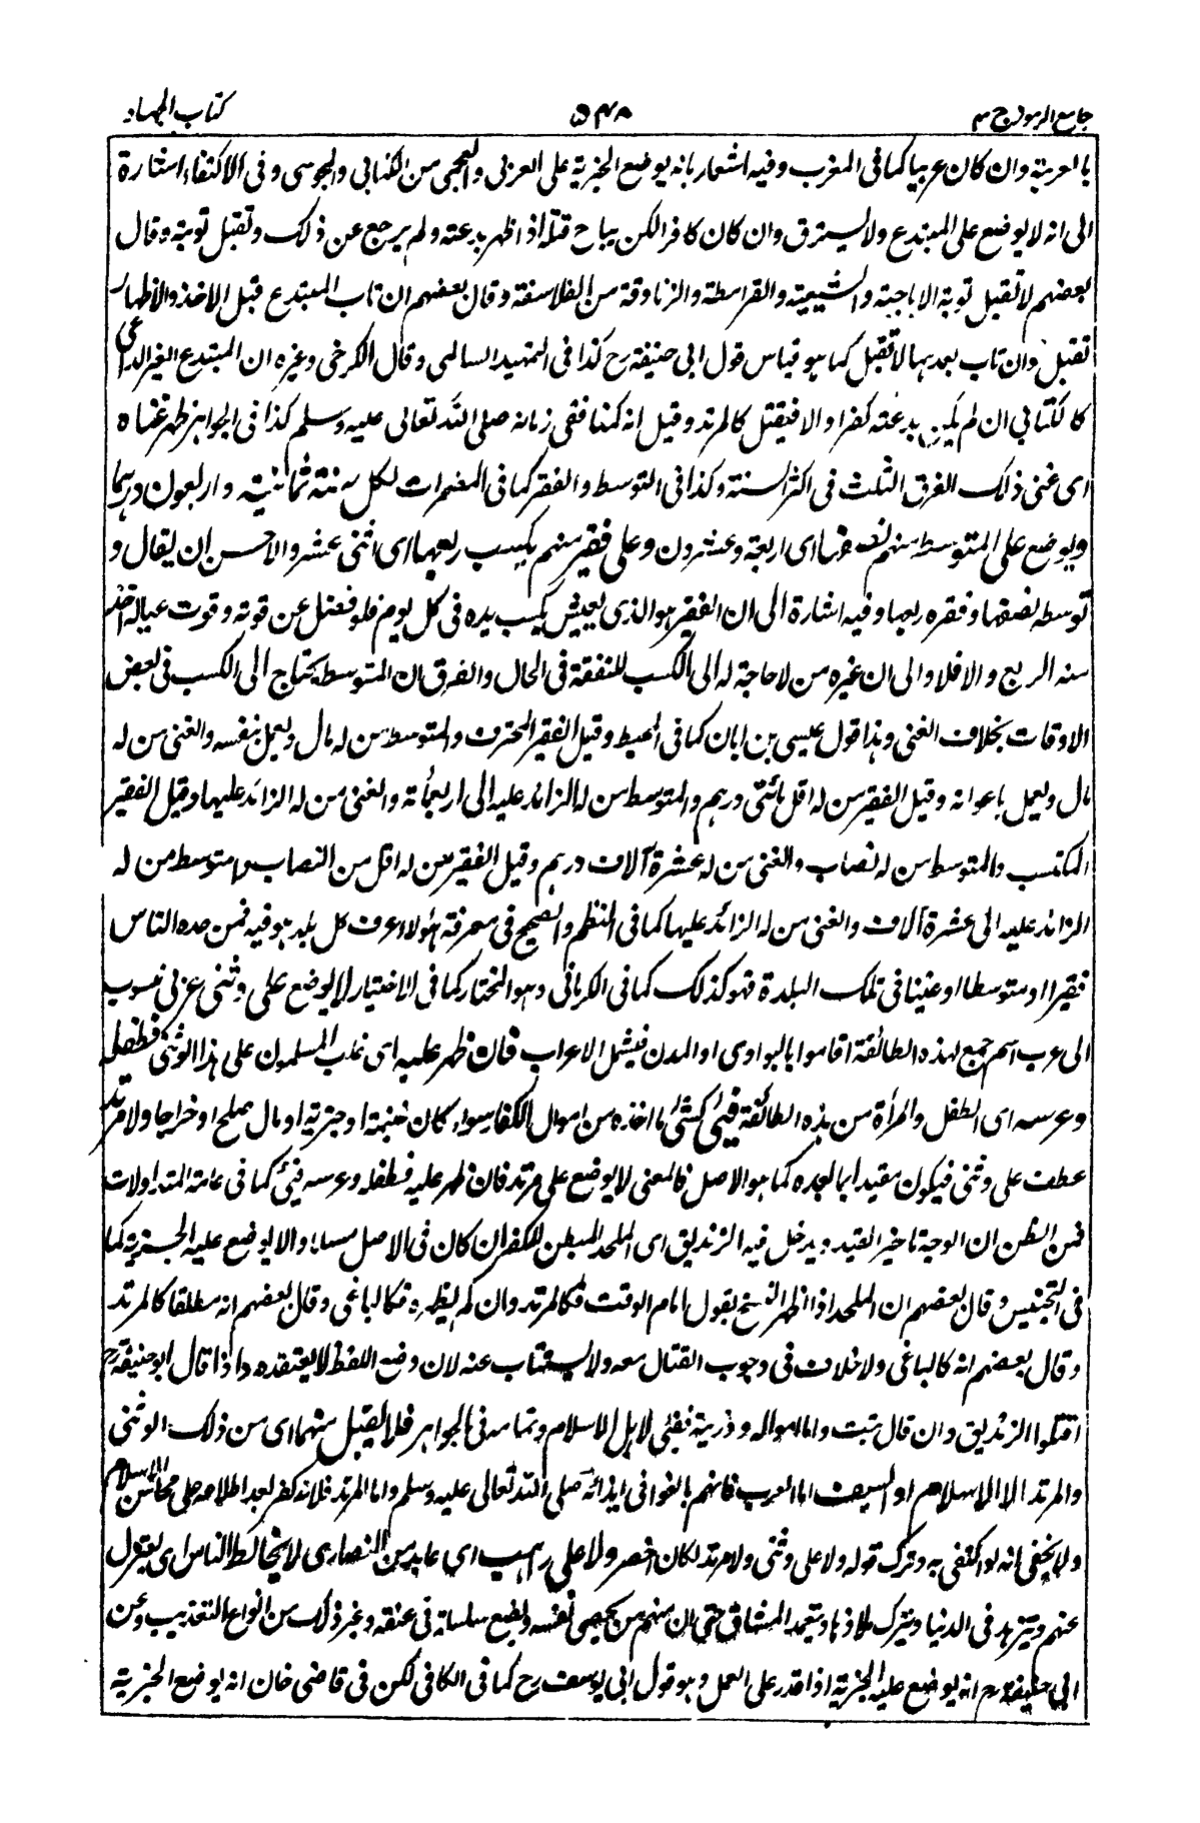 جامع الرموز ج ٣ ٥٤٨ كتاب الجهاد
بالعربية وان كان عربيا كما فى المغرب وفيه اشعار بانه يوضع الجزية على العربى والعجمى من الكتابى والمجوسى وفى الاكتفاء اشارة
الى انه لا يوضع على المبتدع ولا يسترق وان كان كافرا لكن يباح قتله اذا اظهر بدعته ولم يرجع عن ذلك وتقبل توبته وقال
بعضهم لا تقبل توبة الاباحية والشيعية والقرامطة والزنادقة من الفلاسفة وقال بعضهم ان تاب المبتدع قبل الاخذ والاظهار
تقبل وان تاب بعدهما لا تقبل كما هو قياس قول ابى حنيفة رح كذا فى التمهيد السالمى وقال الكرخى وغيره ان المبتدع الغير الداعى
كالكتابى ان لم يكن بدعته كفرا والا فيقتل كالمرتد وقيل انه كمنافقى زمانه صلى الله تعالى عليه وسلم كذا فى الجواهر ظهر غناه
اى غنى ذلك الفرق الثلث فى اكثر السنة وكذا فى التوسط والفقر كما فى المضمرات لكل سنة ثمانية واربعون درهما
ويوضع على المتوسط منهم نصفها اى اربعة وعشرون وعلى فقير منهم يكسب ربعها اى اثنى عشر والاحسن ان يقال و
توسطه نصفها وفقره ربعها وفيه اشارة الى ان الفقير هو الذى يعيش بكسب يده فى كل يوم فلو فضل عن قوته وقوت عياله اخذ
منه الربع والا فلا والى ان غيره من لا حاجة له الى الكسب للنفقة فى الحال والفرق ان المتوسط يحتاج الى الكسب فى بعض
الاوقات بخلاف الغنى وهذا قول عيسى بن ابان كما فى المحيط وقيل الفقير المحترف والمتوسط من له مال ويعمل بنفسه والغنى من له
مال ويعمل باعوانه وقيل الفقير من له اقل مائتى درهم والمتوسط من له الزائد عليه الى اربعمائة والغنى من له الزائد عليها وقيل الفقير
المكتسب والمتوسط من له نصاب والغنى من له عشرة آلاف درهم وقيل الفقير من له اقل من النصاب والمتوسط من له
الزائد عليه الى عشرة آلاف والغنى من له الزائد عليها كما فى النظم والصحيح فى معرفة هؤلاء عرف كل بلد هو فيه فمن عده الناس
فقيرا او متوسطا او غنيا فى تلك البلدة فهو كذلك كما فى الكرمانى وهو المختار كما فى الاختيار لا يوضع على وثنى عربى منسوب
الى عرب اسم جمع لهذه الطائفة اقاموا بالبوادى او المدن فيشمل الاعراب فان ظهر عليه اى غلب المسلمون على هذا الوثنى فطفله
وعرسه اى الطفل والمرأة من هذه الطائفة فيئ كشئ ما اخذه من اموال الكفار سواء كان غنيمة او جزية او مال صلح او خراجا ولا مرتد
عطف على وثنى فيكون مقيدا بما بعده كما هو الاصل فالمعنى لا يوضع على مرتد فان ظهر عليه فطفله وعرسه فيئ كما فى عامة المتداولات
فمن الظن ان الوجه تاخير القيد ويدخل فيه الزنديق اى الملحد المبطن للكفر ان كان فى الاصل مسلما والا يوضع عليه الجزية كما
فى التجنيس وقال بعضهم ان الملحد اذا اظهر بقول امام الوقت فكالمرتد وان لم يظهره فكالباغى وقال بعضهم انه مطلقا كالمرتد
وقال بعضهم انه كالباغى ولا خلاف فى وجوب القتال معه ولا يستتاب عنه لان وضع اللفظ لا يعتقده واذا قال ابو حنيفة رح
اقتلوا الزنديق وان قال تبت واما امواله وذريته ففيئ لاهل الاسلام وتمامه فى الجواهر فلا يقبل منهما اى من ذلك الوثنى
والمرتد الا الاسلام او السيف اما العرب فانهم بالغوا فى ايذائه صلى الله تعالى عليه وسلم واما المرتد فلانه كفر بعد اطلاعه على محاسن الاسلام
ولا يخفى انه لو اكتفى به وترك قوله ولا على وثنى ولا مرتد لكان اخصر ولا على راهب اى عابد من النصارى لا يخالط الناس اى يعتزل
عنهم ويتزهد فى الدنيا ويترك ملاذها ويتعمد المشاق حتى ان منهم من يخصى نفسه ويضع سلسلة فى عنقه وغير ذلك من انواع التعذيب وعن
ابى حنيفة رح انه يوضع عليه الجزية اذا قدر على العمل وهو قول ابى يوسف رح كما فى الكافى لكن فى قاضى خان انه يوضع الجزية